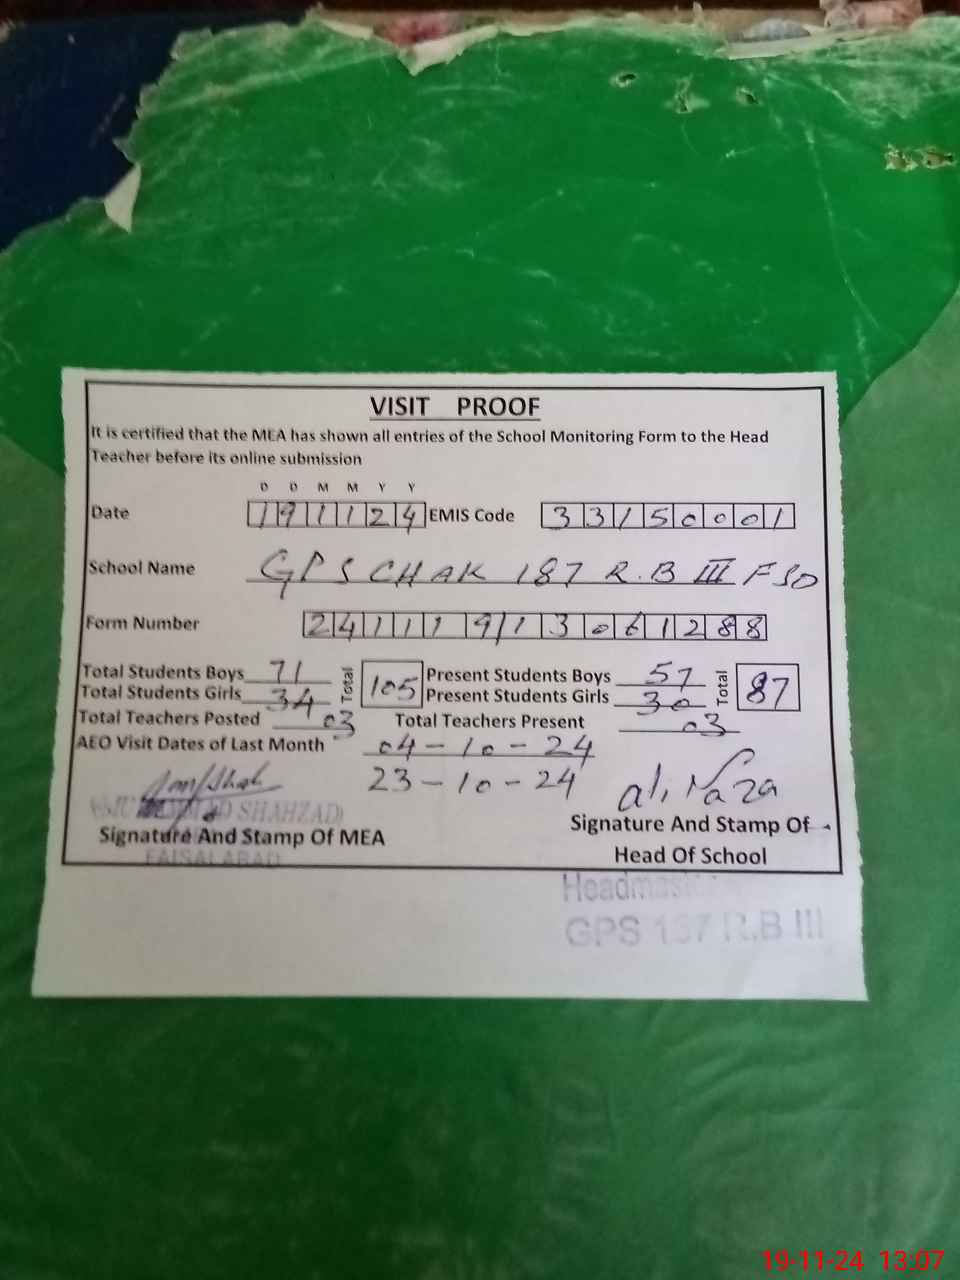 VISIT PROOF
It is certified that the MEA has shown all entries of the School Monitoring Form to the Head
Teacher before its online submission
D D M M Y Y
Date 191124 EMIS Code 33150001
School Name GPS CHAK 187 R.B III FSD
Form Number 24111913061288
Total Students Boys 71 Total 105 Present Students Boys 57 Total 87
Total Students Girls 34 Present Students Girls 30
Total Teachers Posted 03 Total Teachers Present 03
AEO Visit Dates of Last Month 04-10-24
23-10-24 ali Raza
SHAHZAD
Signature And Stamp Of MEA Signature And Stamp Of
FAISALABAD Head Of School
GPS 187 R.B III
19-11-24 13:07